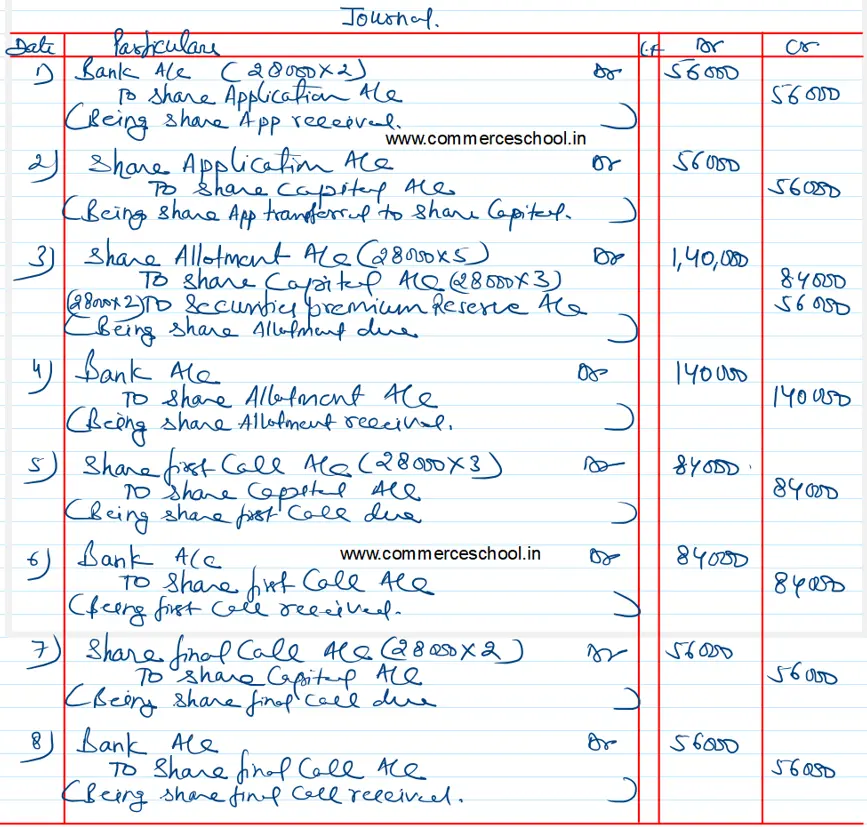 Journal.
Date Particulars L.F Dr Cr
1) Bank A/c (28000×2) Dr 56000
To Share Application A/c 56000
(Being share App received. )
www.commerceschool.in
2) Share Application A/c Dr 56000
To Share Capital A/c 56000
(Being share App transferred to Share Capital. )
3) Share Allotment A/c (28000×5) Dr 1,40,000
To Share Capital A/c (28000×3) 84000
(28000×2) To Securities premium Reserve A/c 56000
(Being share Allotment due )
4) Bank A/c Dr 140000
To Share Allotment A/c 140000
(Being share Allotment received. )
5) Share first Call A/c (28000×3) Dr 84000
To Share Capital A/c 84000
(Being share first Call due )
www.commerceschool.in
6) Bank A/c Dr 84000
To Share first Call A/c 84000
(Being first Call received. )
7) Share final Call A/c (28000×2) Dr 56000
To Share Capital A/c 56000
(Being share final call due )
8) Bank A/c Dr 56000
To Share final Call A/c 56000
(Being share final Call received. )